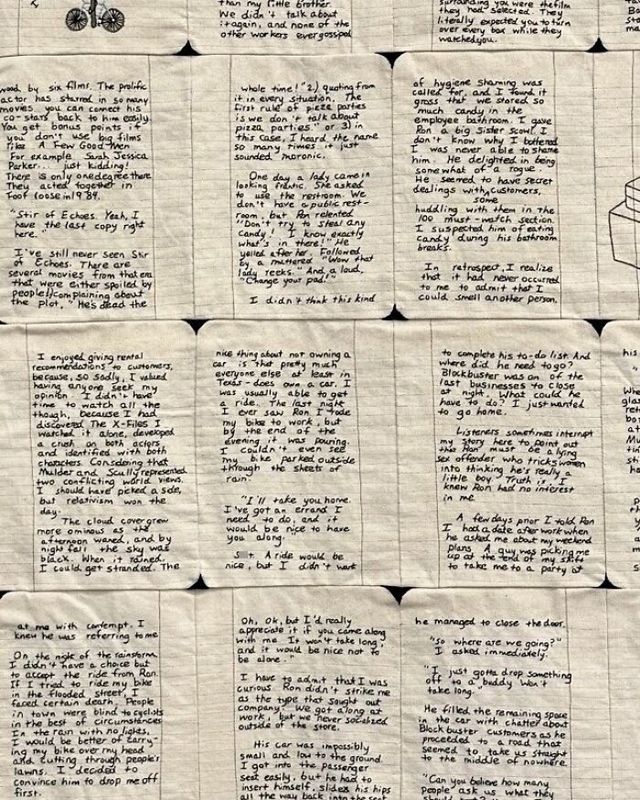 than my little brother.
We didn't talk about
it again, and none of the
other workers ever gossiped
surrounding you were the film
they had selected. They
literally expected you to turn
over every box while they
watched you.
wood by six films. The prolific
actor has starred in so many
movies you can connect his
co-stars back to him easily.
You get bonus points if
you don't use big films
like A Few Good Men
For example Sarah Jessica
Parker... just kidding!
There is only one degree there
They acted together in
Footloose in 1984.
"Stir of Echoes. Yeah, I
have the last copy right
here."
I've still never seen Stir
of Echoes. There are
several movies from that era
that were either spoiled by
people complaining about
the plot, "He's dead the
whole time!" 2.) quoting from
it in every situation. The
first rule of pizza parties
is we don't talk about
pizza parties." or 3) in
this case, I heard the name
so many times it just
sounded moronic.
One day a lady came in
looking frantic. She asked
to use the restroom. We
don't have a public rest-
room, but Ron relented
"Don't try to steal any
candy! I know exactly
what's in there!" He
yelled after her. Followed
by a muttered "Wow that
lady reeks." And a loud,
"Change your pad!"
I didn't think this kind
of hygiene shaming was
called for, and I found it
gross that we stored so
much candy in the
employee bathroom. I gave
Ron a big sister scowl. I
don't know why I bothered
I was never able to shame
him. He delighted in being
somewhat of a rogue.
He seemed to have secret
dealings with customers,
some
huddling with them in the
100 must-watch section.
I suspected him of eating
candy during his bathroom
breaks.
In retrospect, I realize
that it had never occurred
to me to admit that I
could smell another person.
I enjoyed giving rental
recommendations to customers,
because, so sadly, I valued
having anyone seek my
opinion. I didn't have
time to watch all the
though, because I had
discovered The X-Files I
watched it alone, developed
a crush on both actors
and identified with both
characters. Considering that
Mulder and Scully represented
two conflicting world views.
I should have picked a side,
but relativism won the
day.
The cloud cover grew
more ominous as the
afternoon waned, and by
night fall the sky was
black. When it rained,
I could get stranded. The
nice thing about not owning a
car is that pretty much
everyone else at least in
Texas - does own a car. I
was usually able to get
a ride. The last night
I ever saw Ron I rode
my bike to work, but
by the end of the
evening it was pouring.
I couldn't even see
my bike parked outside
through the sheets of
rain.
"I'll take you home.
I've got an errand I
need to do, and it
would be nice to have
you along."
A ride would be
nice, but I didn't want
to complete his to-do list. And
where did he need to go?
Blockbuster was on of the
last businesses to close
at night. What could he
have to do? I just wanted
to go home.
Listeners sometimes interrupt
my story here to point out
the Ron must be a lying
sex offender who tricks women
into thinking he's really a
little boy. Truth is, I
knew Ron had no interest
in me.
A few days prior I told Ron
I had a date after work when
he asked me about my weekend
plans. A guy was picking me
up at the end of my shift
to take me to a party at
his
at me with contempt. I
knew he was referring to me
On the night of the rainstorm
I didn't have a choice but
to accept the ride from Ron.
If I tried to ride my bike
in the flooded street, I
faced certain death. People
in town were blind to cyclists
in the best of circumstances
In the rain with no lights,
I would be better of carry-
ing my bike over my head
and cutting through people's
lawns. I decided to
convince him to drop me off
first.
Oh, ok, but I'd really
appreciate it if you came along
with me. It won't take long,
and it would be nice not to
be alone."
I have to admit that I was
curious Ron didn't strike me
as the type that sought out
company. We got along at
work, but we never socialized
outside of the store.
His car was impossibly
small and low to the ground
I got into the passenger
seat easily, but he had to
insert himself, slides his hips
all the way back into the seat
he managed to close the door.
"So where are we going?"
I asked immediately.
"I just gotta drop something
off to a buddy Won't
take long."
He filled the remaining space
in the car with chatter about
Blockbuster customers as he
proceeded to a road that
seemed to take us straight
to the middle of nowhere.
"Can you believe how many
people ask us what they